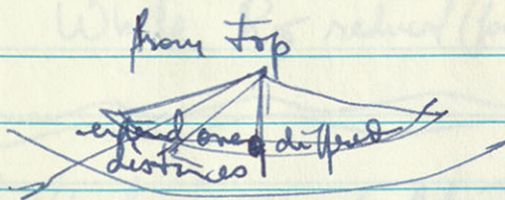 from top
extend over different
distances